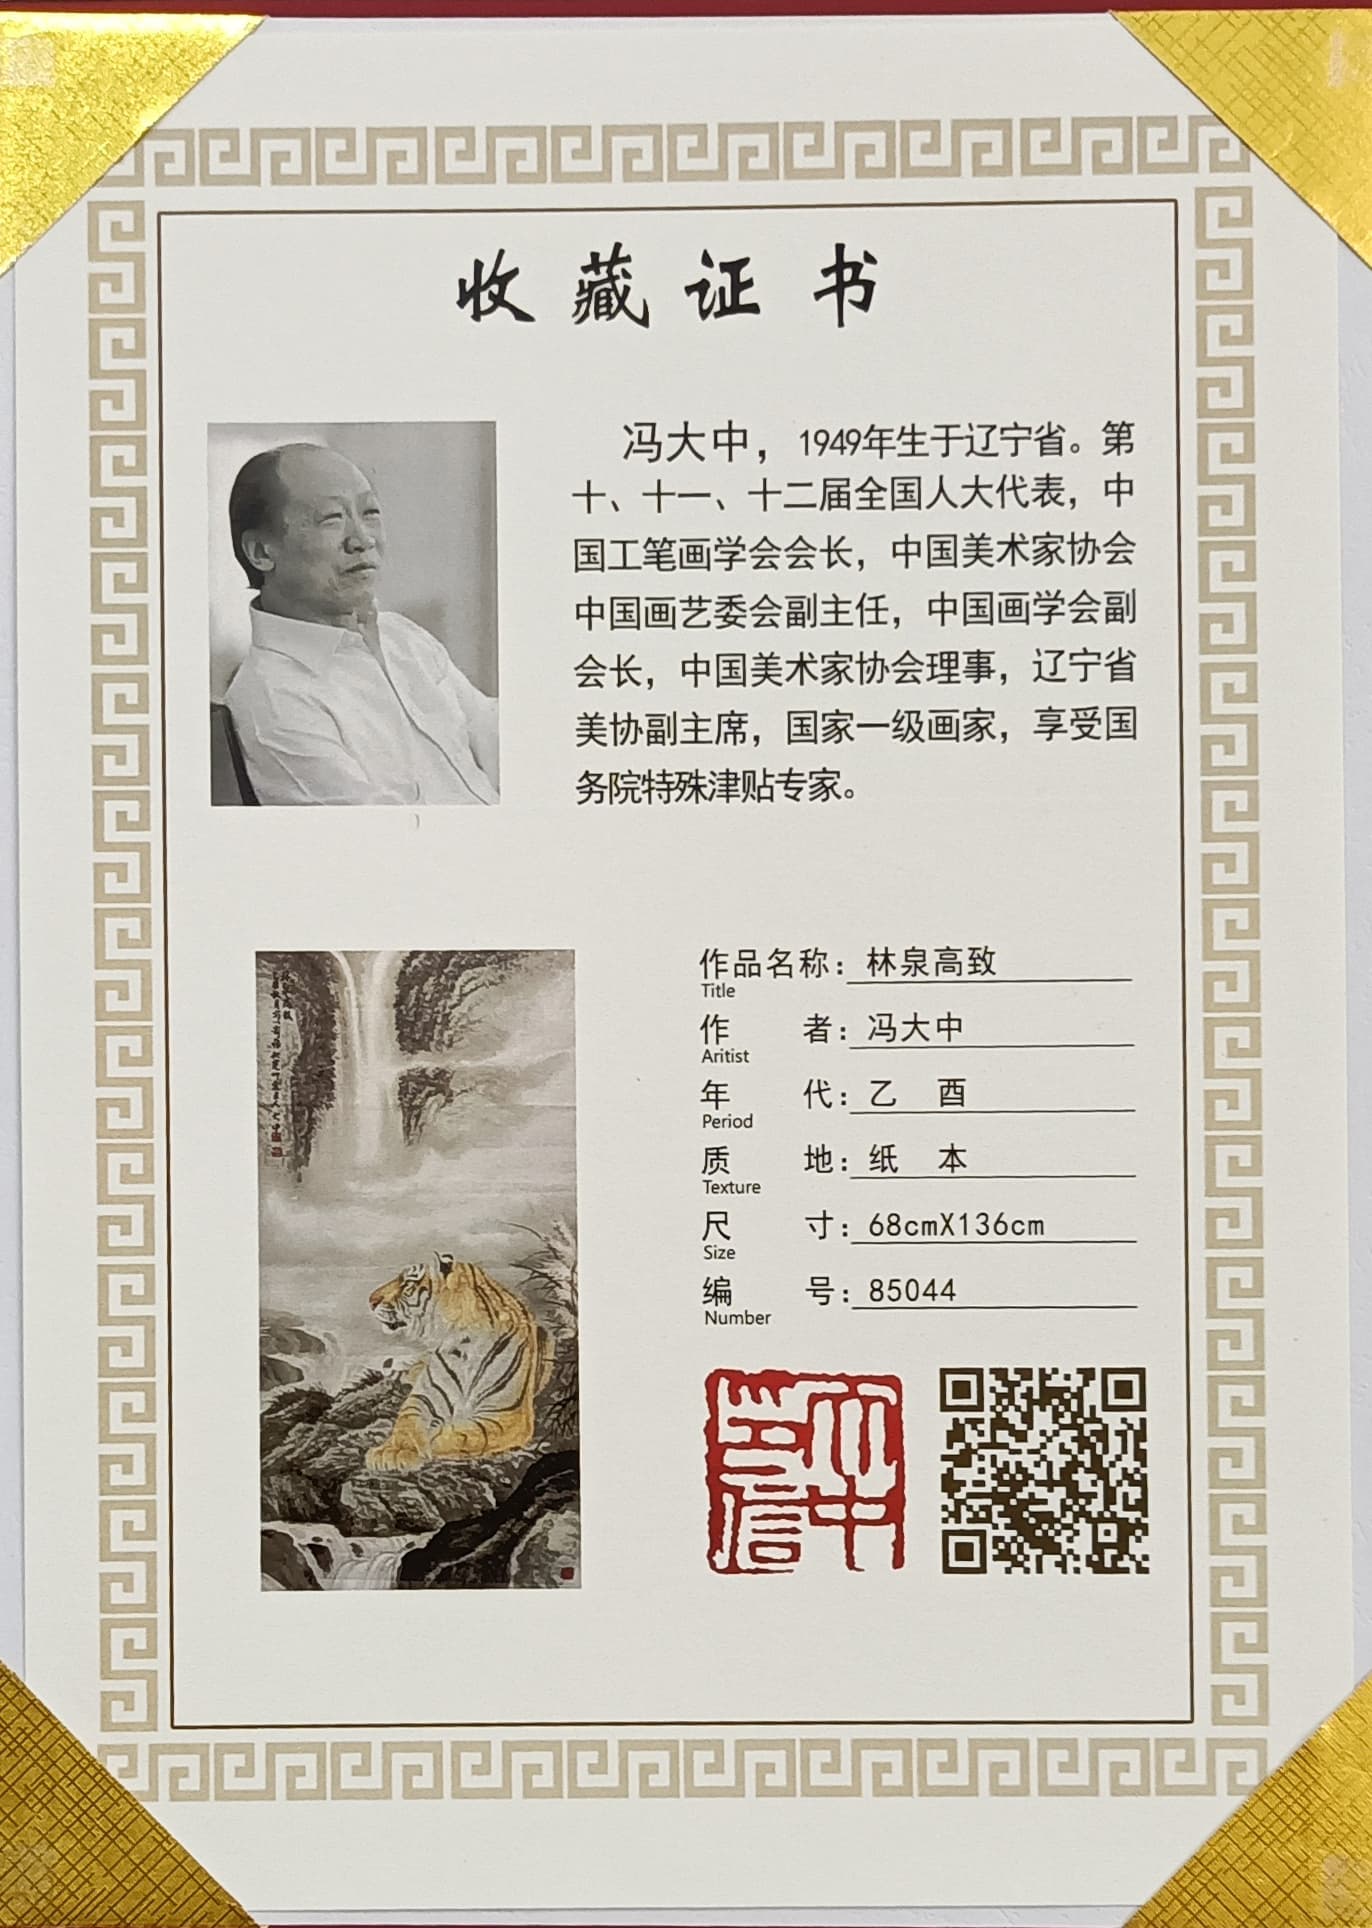 收藏证书
冯大中，1949年生于辽宁省。第
十、十一、十二届全国人大代表，中
国工笔画学会会长，中国美术家协会
中国画艺委会副主任，中国画学会副
会长，中国美术家协会理事，辽宁省
美协副主席，国家一级画家，享受国
务院特殊津贴专家。
作品名称：林泉高致
Title
作者：冯大中
Aritist
年代：乙 酉
Period
质地：纸 本
Texture
尺寸：68cmX136cm
Size
编号：85044
Number